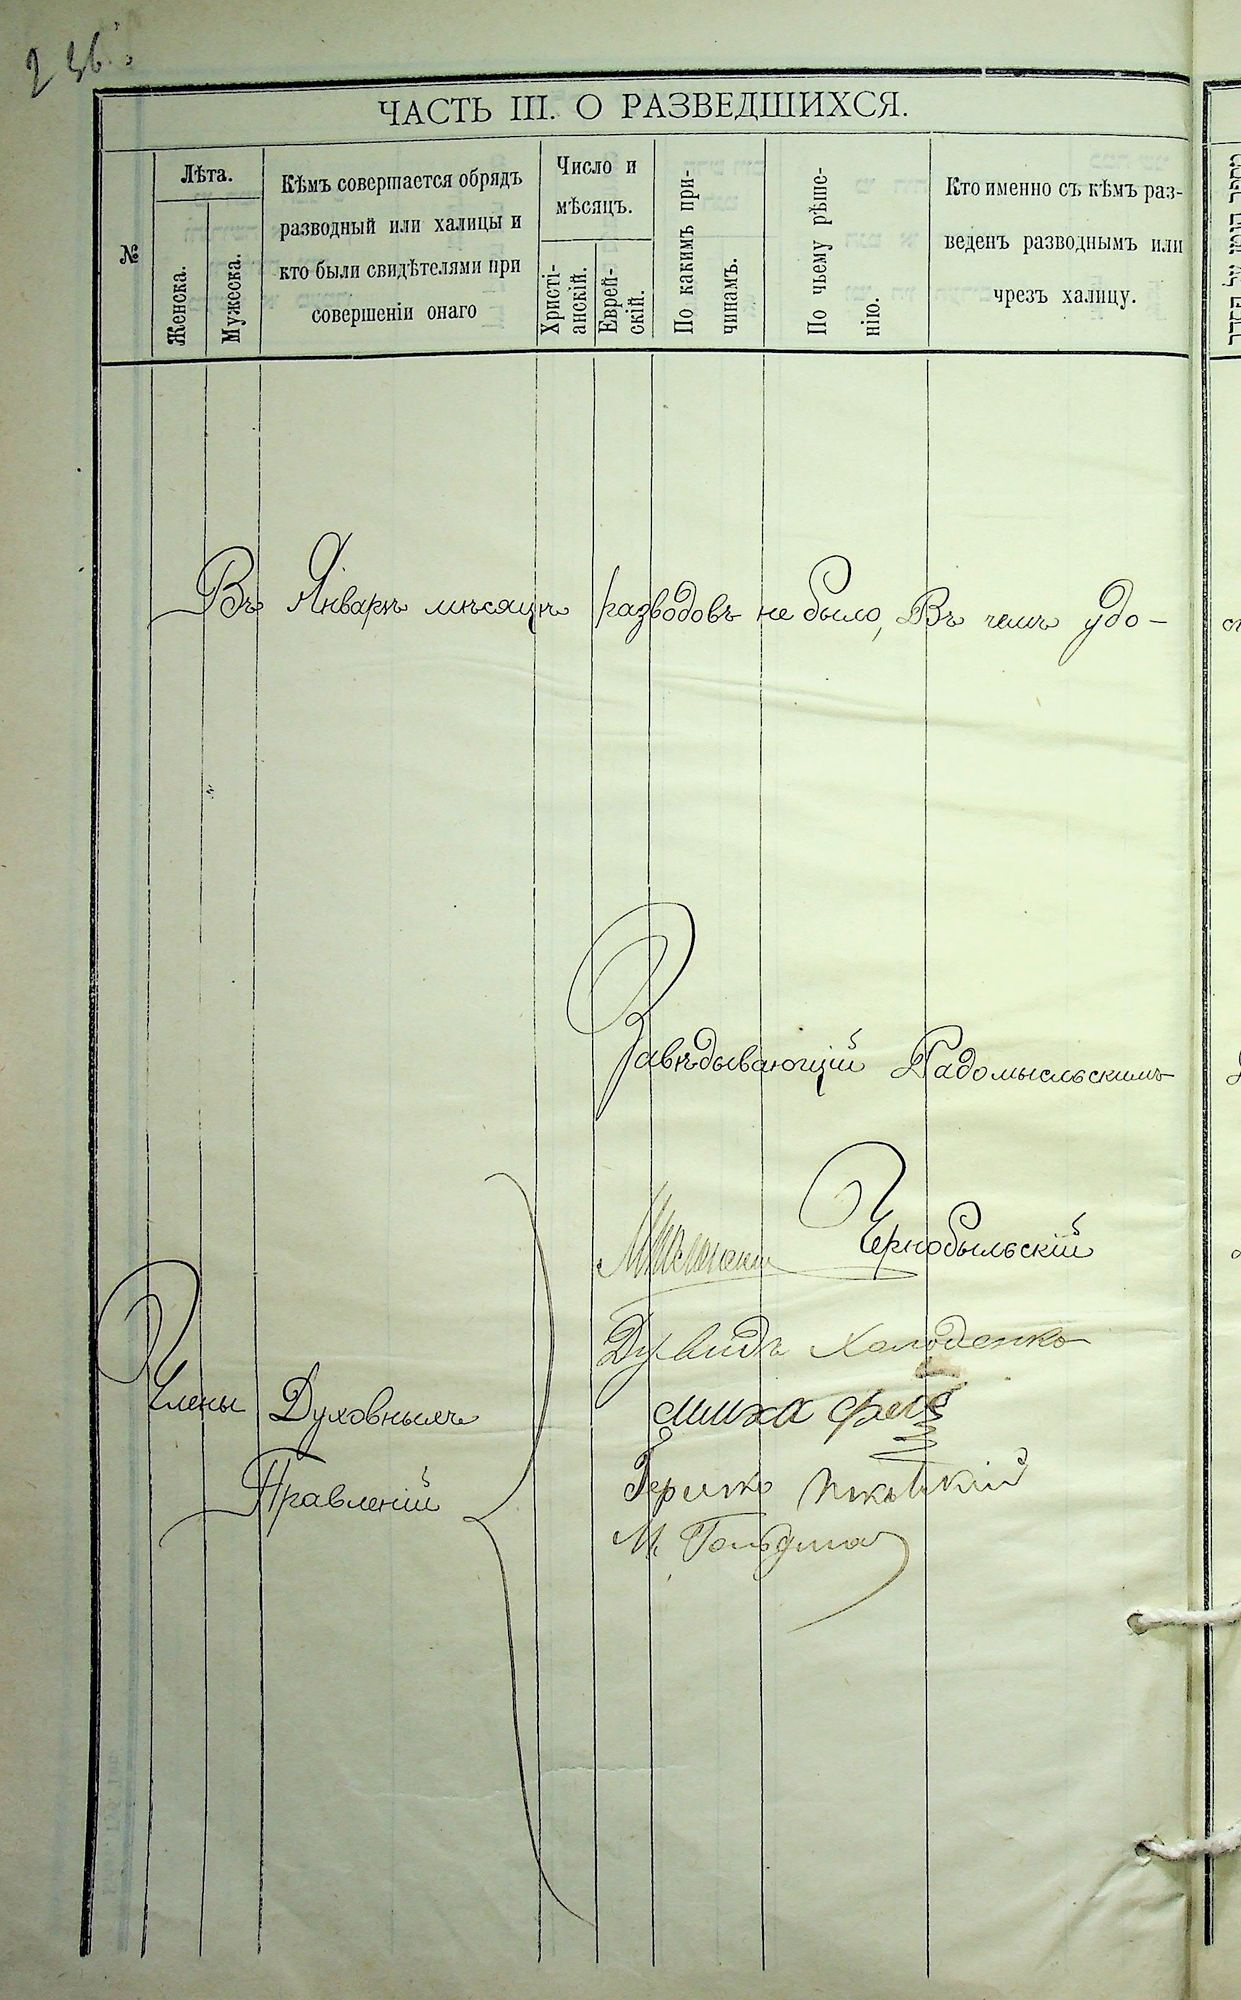 236.
ЧАСТЬ III. О РАЗВЕДШИХСЯ.
№
Лѣта.
Женска.
Мужеска.
Кѣмъ совершается обрядъ
разводный или халицы и
кто были свидѣтелями при
совершеніи онаго
Число и
мѣсяцъ.
Христі-
анскій.
Еврей-
скій.
По какимъ при-
чинамъ.
По чьему рѣше-
нію.
Кто именно съ кѣмъ раз-
веденъ разводнымъ или
чрезъ халицу.
Въ Январѣ мѣсяцѣ разводовъ не было, Въ чемъ удо-
Завѣдывающій Радомысльскимъ
Чернобыльскій
Холоденко
Члены Духовныхъ
Правленій
Гершко
М.